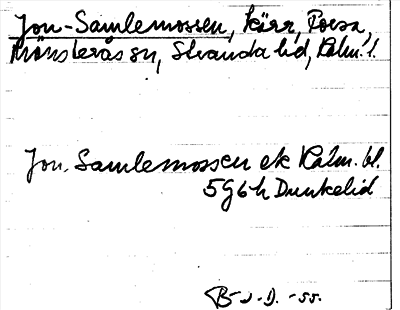 Jon-Samlemossen, kärr, Torsa,
Mönsterås sn, Stranda hd, Kalm. l.
Jon-Samlemossen ek Kalm. bl.
5g6h Dunkelid
-55.